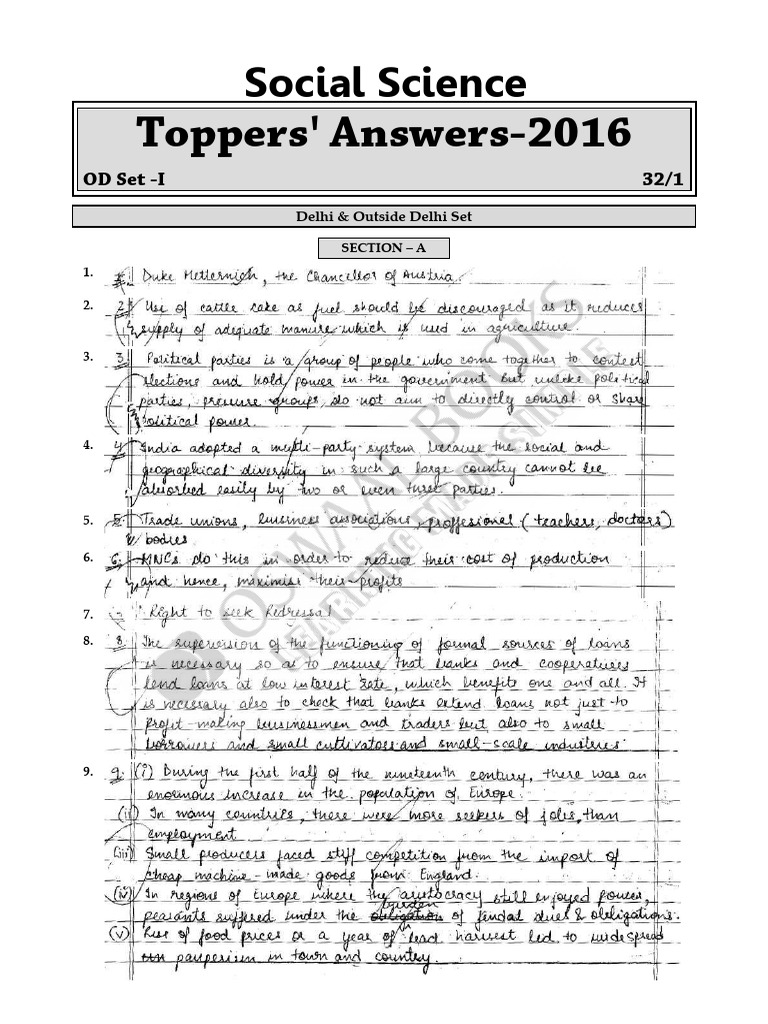 Social Science
Toppers' Answers-2016
OD Set -I 32/1
Delhi & Outside Delhi Set
SECTION – A
1. Duke Metternich, the Chancellor of Austria.
2. 2. Use of cattle cake as fuel should be discouraged as it reduces
supply of adequate manure which is used in agriculture.
3. 3. Political parties is a group of people who come together to contest
elections and hold power in the government but unlike political
parties, pressure groups do not aim to directly control or share
political power.
4. 4. India adopted a multi-party system because the social and
geographical diversity in such a large country cannot be
absorbed easily by two or even three parties.
5. 5. Trade unions, business associations, proffesional (teachers, doctors)
bodies
6. 6. MNCs do this in order to reduce their cost of production
and hence, maximise their profits
7. Right to seek Redressal
8. 8. The supervision of the functioning of formal sources of loans
is necessary so as to ensure that banks and cooperatives
lend loans at low interest rate, which benefits one and all. It
is necessary also to check that banks extend loans not just to
profit-making businessmen and traders but also to small
borrowers and small cultivators and small-scale industries.
9. 9. (i) During the first half of the nineteenth century, there was an
enormous increase in the population of Europe.
(ii) In many countries, there were more seekers of jobs, than
employment
(iii) Small producers faced stiff competition from the import of
cheap machine-made goods from England.
(iv) In regions of Europe where the aristocracy still enjoyed power,
peasants suffered under the burden of feudal dues & obligations.
(v) Rise of food prices or a year of bad harvest led to widespread
pauperism in town and country.
OSWAAL BOOKS
LEARNING MADE SIMPLE